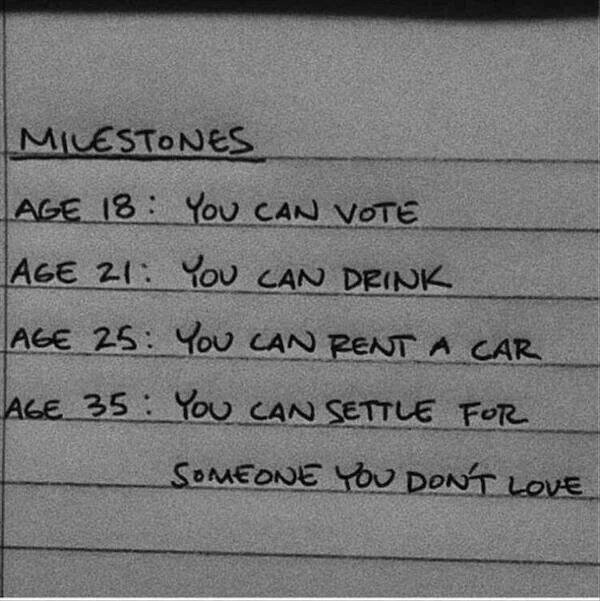 MILESTONES
AGE 18: YOU CAN VOTE
AGE 21: YOU CAN DRINK
AGE 25: YOU CAN RENT A CAR
AGE 35: YOU CAN SETTLE FOR
SOMEONE YOU DON'T LOVE